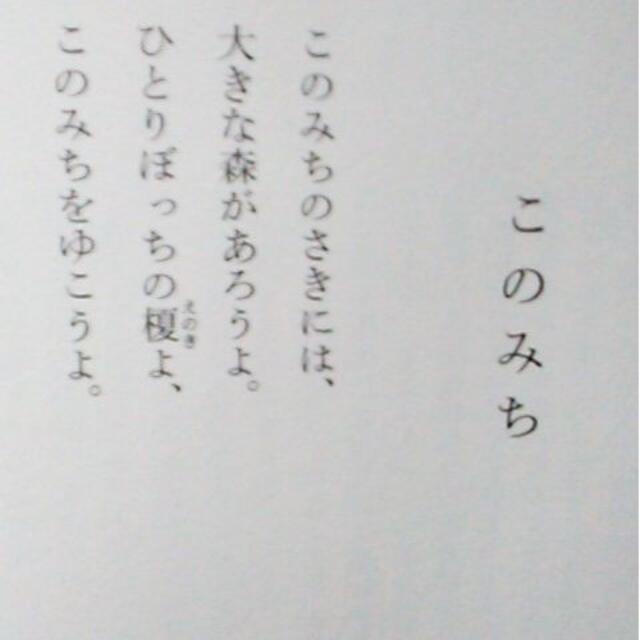 このみち
このみちのさきには、
大きな森があろうよ。
ひとりぼっちの榎よ、
えのき
このみちをゆこうよ。